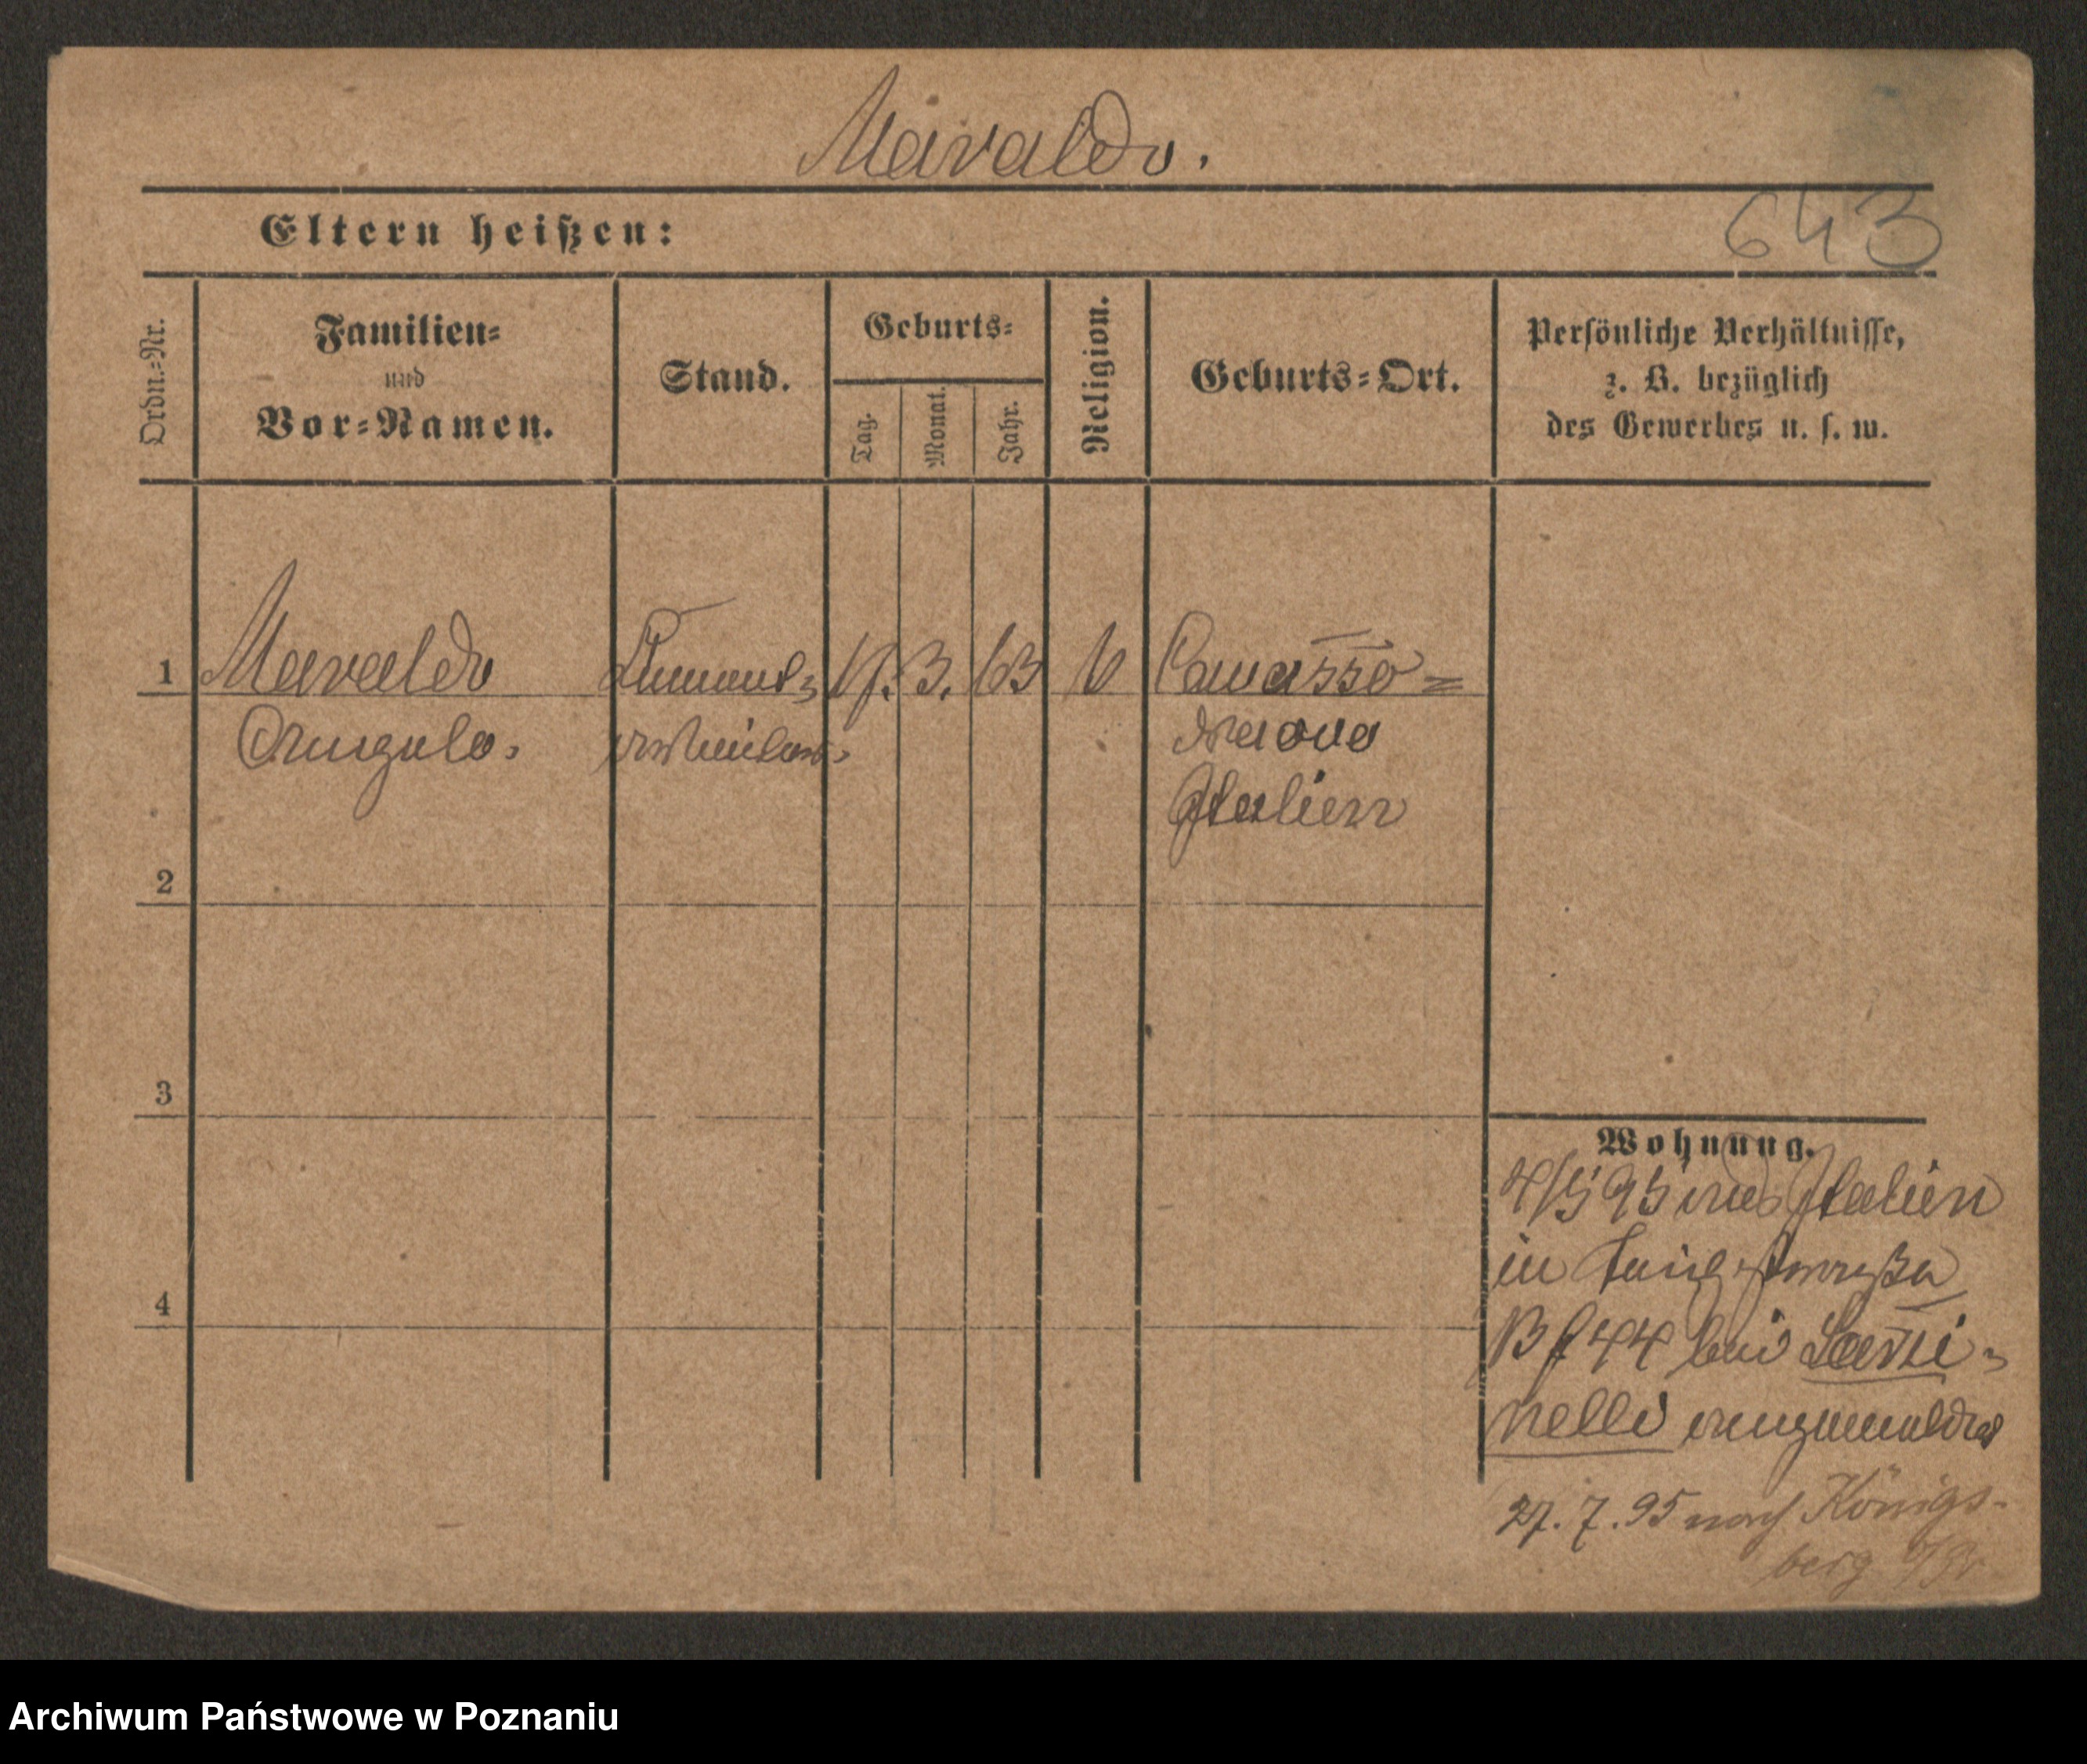 Mavaldo.
643
Eltern heißen:
Ordn.-Nr.
Familien-
und
Vor-Namen.
Stand.
Geburts-
Tag.
Monat.
Jahr.
Religion.
Geburts-Ort.
Persönliche Verhältnisse,
z. B. bezüglich
des Gewerbes u. s. w.
1
Mavaldo
Angelo.
Cement-
arbeiter
17. 3. 63
Cavasso-
Nuovo
Italien
2
3
4
Wohnung.
4/5 95 aus Italien
in
44 bei
nelli angemeldet
27. 7. 95 nach Königs-
berg
Archiwum Państwowe w Poznaniu